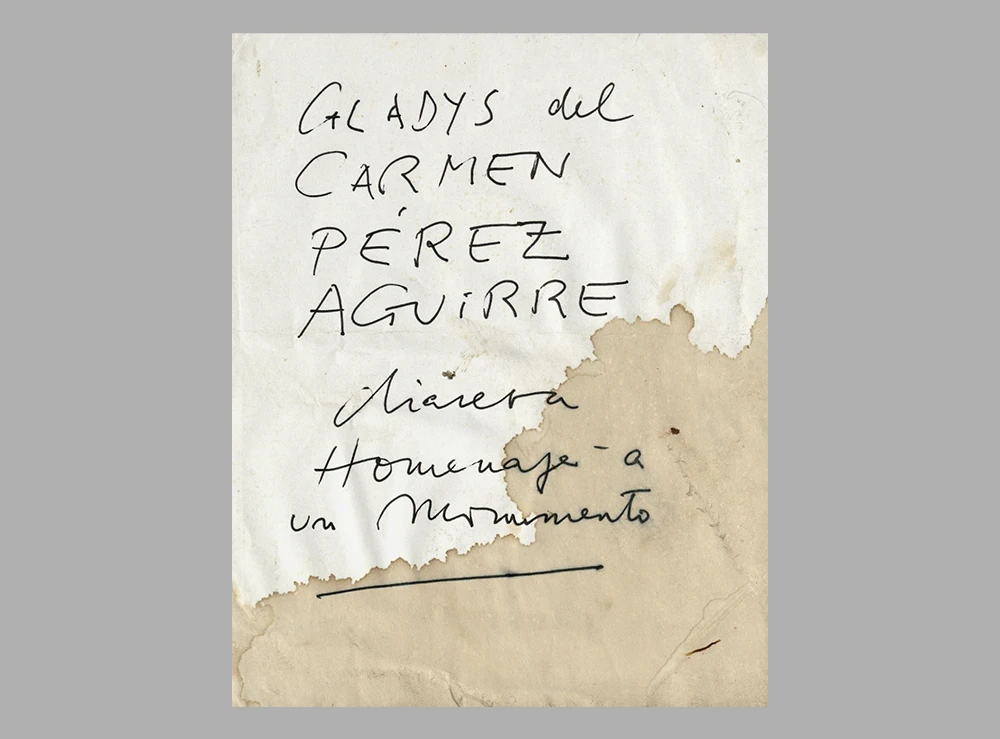 GLADYS del
CARMEN
PÉREZ
AGUIRRE
Homenaje a
un Monumento